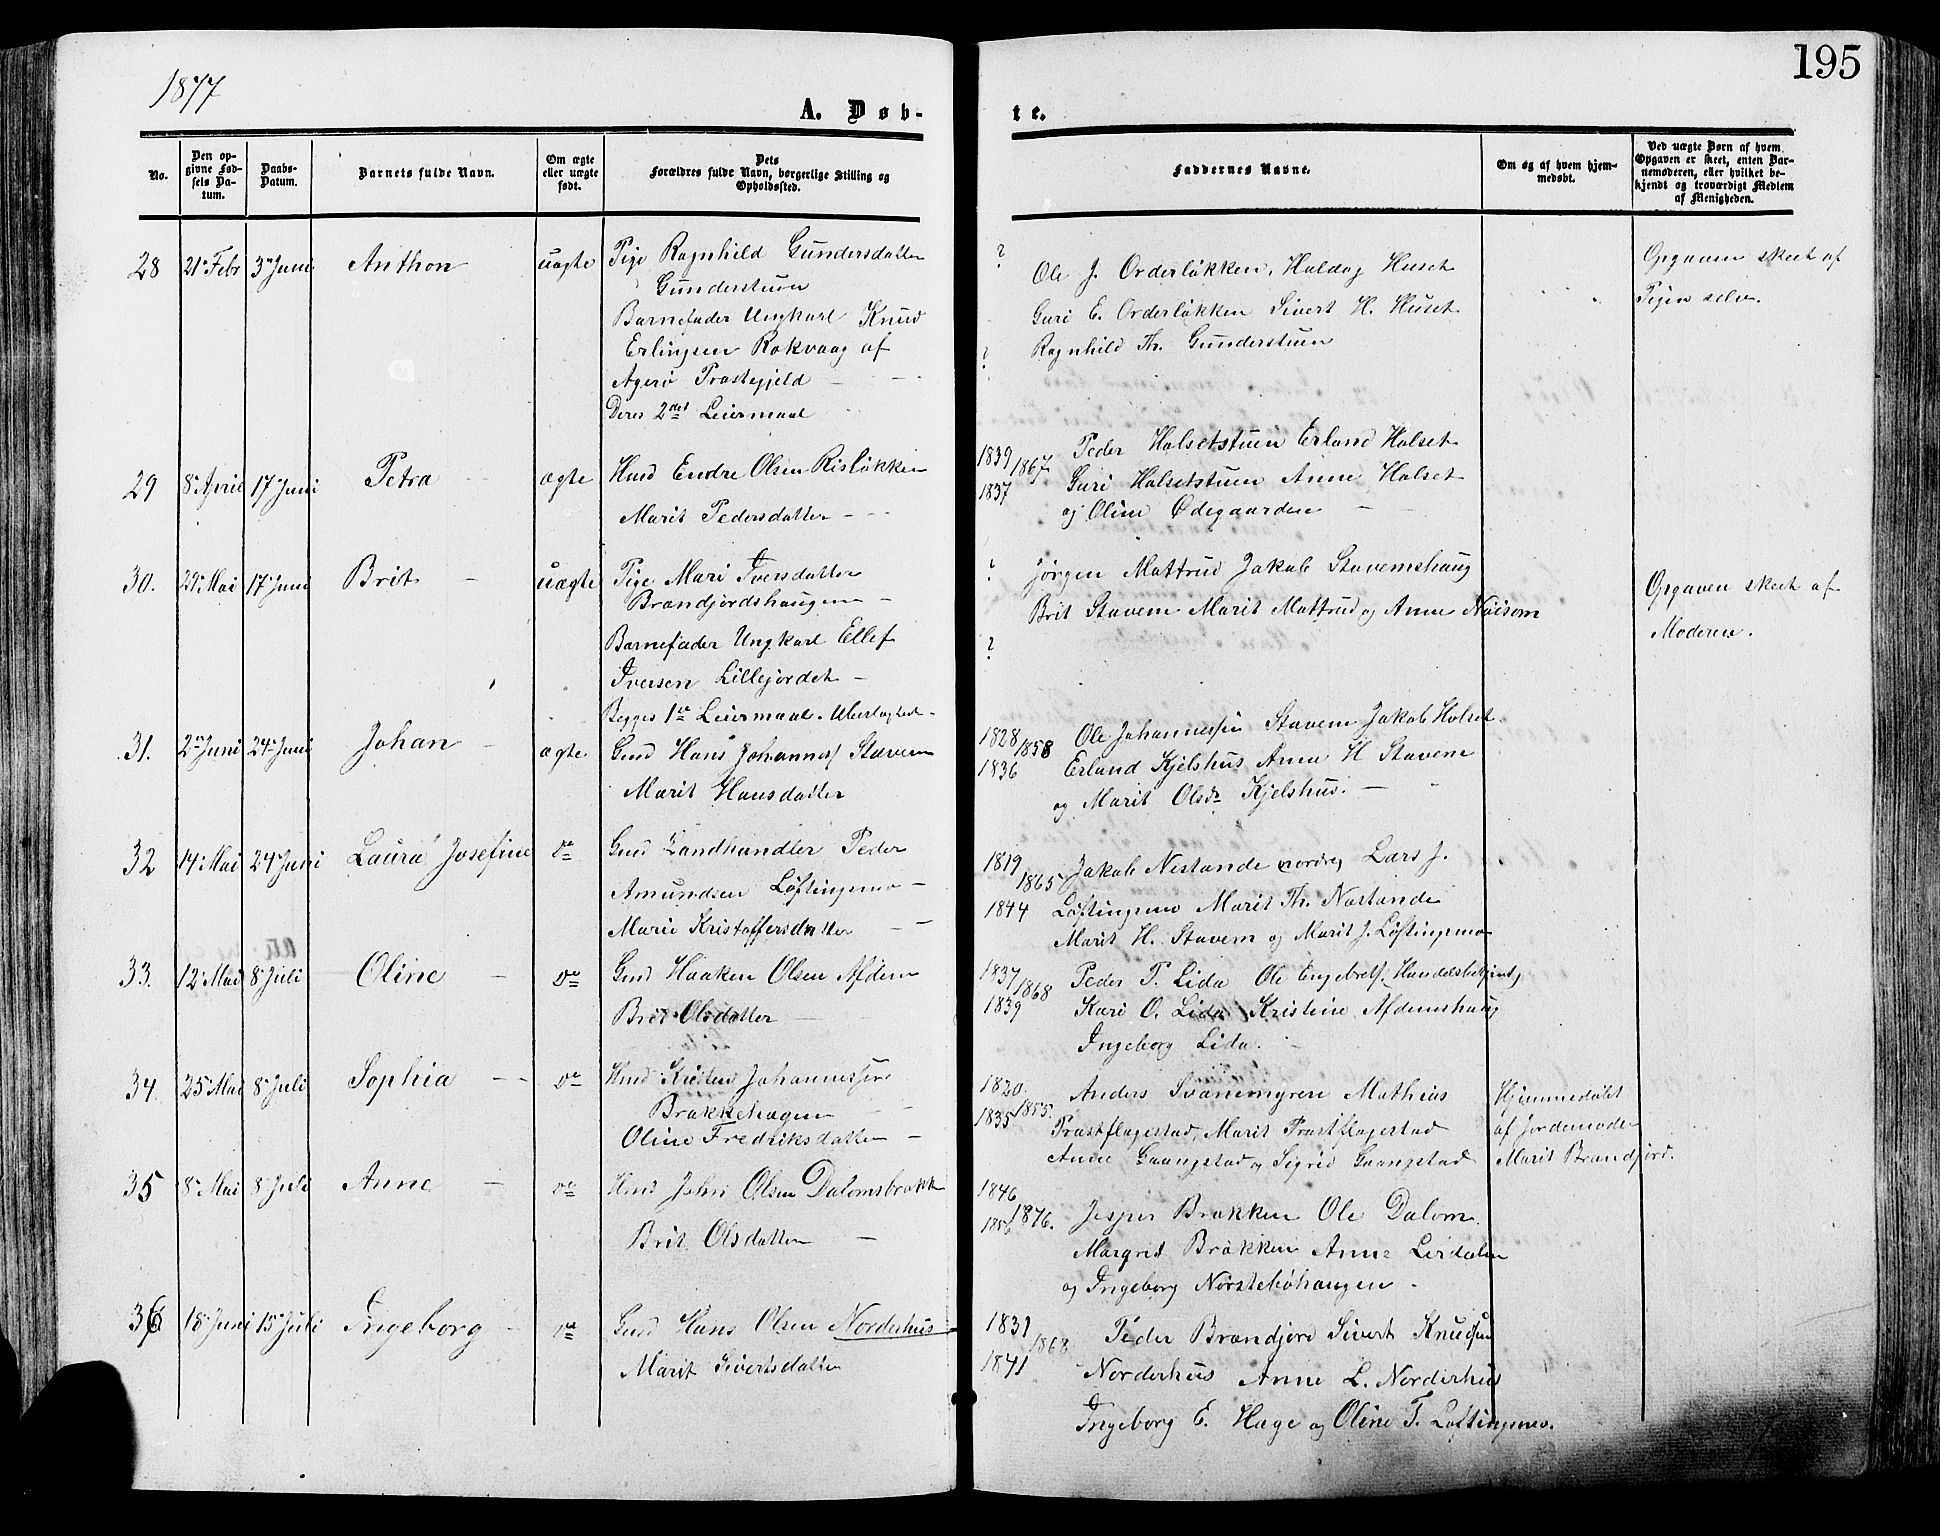 1877
195
A. Døb-
te.
No.
Den opgivne Fødsels Datum.
Daabs-Datum.
Barnets fulde Navn.
Om ægte eller uægte født.
Dets Forældres fulde Navn, borgerlige Stilling og Opholdssted.
Faddernes Navne.
Om og af hvem hjemmedøbt.
Ved uægte Børn af hvem Opgaven er skeet, enten Barnemoderen, eller hvilket bekjendt og troværdigt Medlem af Menigheden.
28 21. Febr 3. Juni Anthon uægte Pige Ragnhild Gundersdatter
Gunderstuen
Barnefader Ungkarl Knud
Erlingsen Rokvaag af
Agerø Præstegjeld
Deres 2det Leiermaal
?
?
Ole J. Orderløkken, Haldog Huset
Guri E. Orderløkken Sivert H. Huset
Ragnhild Th. Gunderstuen
Opgaven skeet af
Pigen selv.
29 8. April 17. Juni Petra ægte Hmd Endre Olsen Risløkken
Marit Pedersdatter
1839 1867
1837
Peder Holsetstuen Erland Holset
Guri Holsetstuen Anne Holset
og Oline Ødegaarden
30. 29. Mai 17. Juni Brit uægte Pige Mari Iversdatter
Brændjordshaugen
Barnefader Ungkarl Ellef
Iversen Lillejordet
Begges 1ste Leiermaal.
?
?
Jørgen Mattrud Jakob Stavemshaug
Brit Stavem Marit Mattrud og Anne
Opgaven skeet af
Moderen.
31. 2. Juni 24. Juni Johan ægte Gmd Hans Johannes Stavem
Marit Hansdatter
1828 1858
1836
Ole Johannessen Stavem Jakob Holset
Erland Kjelshus Anne H Stavem
og Marit Olsdr Kjelshus.
32 14. Mai 24. Juni Laura Josefine do Gmd Landhandler Peder
Amundsen Løftingsmo
Marie Kristoffersdatter
1819 1865
1844
Jakob Nestande nordre, Lars J.
Løftingsmo Marit Th. Nestande
Marit H. Stavem og Marit J. Løftingsmo
33. 12. Mai 8. Juli Oline do Gmd Haaken Olsen Afdem
Brit Olsdatter
1837 1868
1839
Peder T. Lida Ole Engebrets. Handelsbetjent,
Kari O. Lida Kristine Afdemshaug
Ingeborg Lida.
34. 25. Mai 8. Juli Sophia do Hmd Johannessen
Brækkehagen
Oline Fredriksdatter
1820. 1855.
1835
Anders Svanemyren Mathias
Præstflagestad, Marit Præstflagestad
Anne Gaangstad og Sigrid Gaangstad
Hjemmedøbt
af Jordemoder
Marit Brændjord.
35 8. Mai 8. Juli Anne do Hmd John Olsen Dalomsbrækk
Brit Olsdatter
1846 1876.
1856
Jesper Brækken Ole Dalom.
Margrit Brækken Anne Lirdalen
og Ingeborg Nørstebøhaugen
36 18. Juni 15. Juli Ingeborg do Gmd Hans Olsen Norderhus
Marit Sivertsdatter
1839 1868
1841
Peder Brændjord Sivert Knudsen
Norderhus Anne L. Norderhus
Ingeborg E. Hage og Oline T. Løftingsmo.